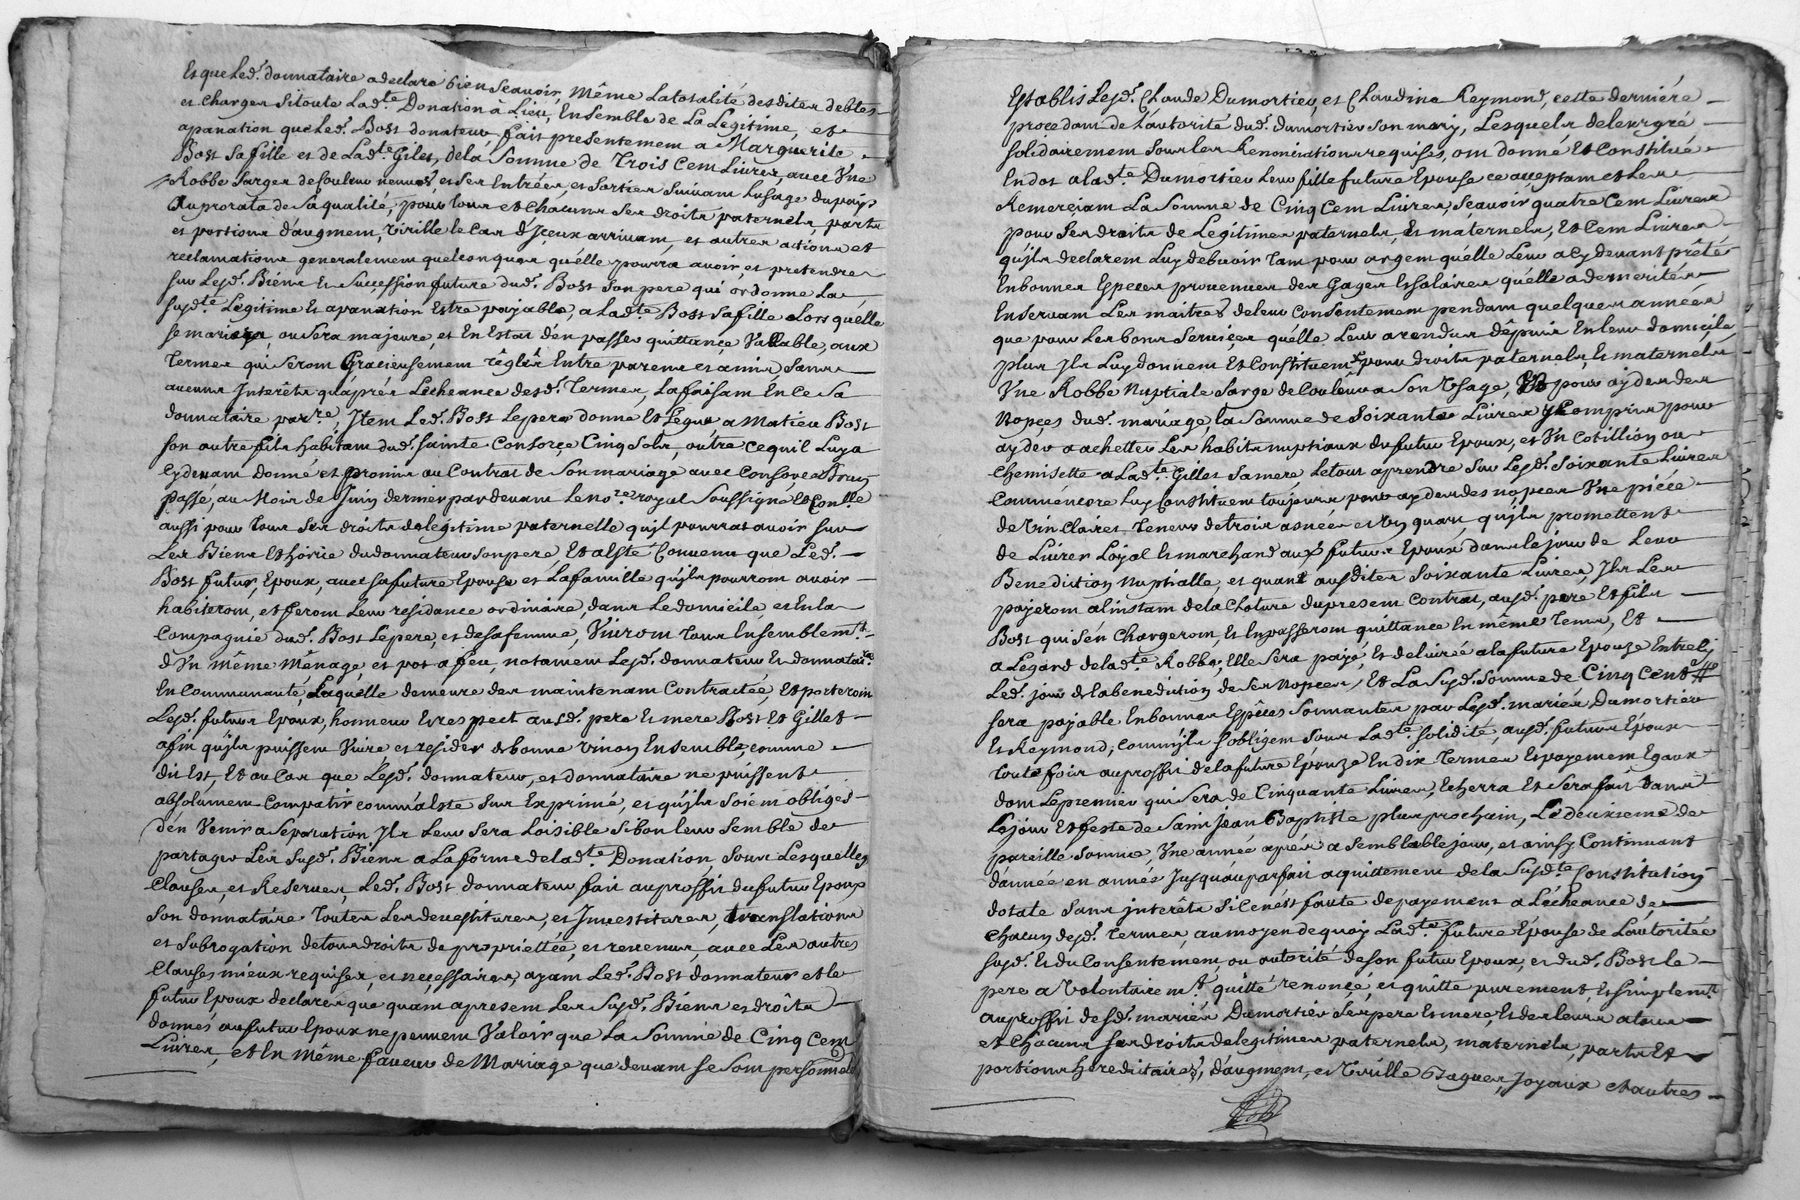 Et que led.t donnataire a declaré bien sçauoir, même la totalité desdites debtes
et charges si toute lad.te Donation à Lieu, Ensemble de La Legitime, et
apanation que led.t Bost donateur, fait presentement a Marguerite
Bost sa fille et de Lad.te Gilet, de la Somme de Trois Cent Liures, auec Vne
Robbe sarge de Couleur neuue, et ses Entrées, et Sorties Suiuant Lusage du pays
Au prorata de sa qualité, pour tous et chacuns ses droits paternels, parts
et portions d'augment, Virille le Cas d'Iceux arriuant, et autres actions et
reclamations generalement quelconques qu'elle pourra auoir, et pretendre
sur Lesd.t Biens et Succession future dud.t Bost son pere qui ordonne La
susd.te Legitime et apanation Estre payable, a Lad.te Bost sa fille alors quelle
se mariera, ou sera majeure, et En Estat d'en passer quittance Vallable, aux
Termes qui seront Gracieusement règlés Entre parens et amis, sans
aucuns Interêts qu'après Lécheance desd.t Termes, La faisant En ce sa
donnataire par.re, Item Led.t Bost Le pere donne et Legue a Matieu Bost
son autre fils habitant dud.t sainte Consorçe Cinq Sols, outre ce quil Luy a
Cydeuant donné et promis au Contrat de Son mariage auec
passé, au Mois de Juin dernier pardeuant Le no.re royal Soussigné et Con.lle
aussi pour tous ses droits de legitime paternelle qu'il pourroit auoir sur
Les Biens et hoirie du donnateur son pere, Et a Esté Conuenu que Led.t
Bost futur Epoux, auec sa future Epouse et La famille qu'ils pourront auoir
habiteront, et feront Leur résidance ordinaire, dans Le domicile, et En la
Compagnie dud.t Bost Le pere, et de sa femme, Viuront tous Ensemblem.t
d'Vn même Ménage, et pot a feu, notament Lesd.t donnateur Et donnatai.re
En Communauté, Laquelle demeure des maintenant Contractée, Et porteront
Lesd.t futurs Epoux, honneur Et respect ausd.t pere Et mere Bost Et Gillet
afin qu'ils puissent Viure et resider de bonne vnion Ensemble, comme
dit Est, Et au Cas que Lesd.t donnateur, et donnataire ne puissent
absolument Compatir comm'a Esté Sus Exprimé, et qu'ils soient obligés
d'en Venir a Separation Ils Leur sera Loisible Si bon leur semble de
partager Les Susd.t Biens a La forme de lad.te Donation, Sous Lesquelles
Clauses, et Reserues, Led.t Bost donnateur fait au proffit du futur Epoux
Son donnataire toutes Les deuestitures, et Inuestitures, translations
et Subrogation de tous droits de proprietée, et reuenus, auec Les autres
Clauses mieux requises, et neçessaires, ayant Led.t Bost donnateur et le
futur Epoux declarer que quant apresent Les Susd.t Biens et droits
donnés au futur Epoux ne peuuent Valoir que La Somme de Cinq Cent
Liures, et En même faueur de Mariage que deuant se sont personnel
Establis Lesd.t Claude Dumortier, et Claudine Reymond, cette derniére
procedant de L'autorité dud.t dumortier son mary, Lesquels de leur gré
solidairement sous les Renonciations requises, ont donné Et Constitué
En dot a lad.te Dumortier Leur fille future Epouse ce acceptant et Les
Remerciant La Somme de Cinq Cent Liures, Sçauoir quatre Cent Liures
pour Ses droits de Legitimes paternels, Et maternels, Et Cent Liures
qu'ils declarent Luy debuoir tant pour argent qu'elle Leur a Cydeuant prêté
En bonnes Especes prouenues des Gages Et Salaires qu'elle a demerités
En seruant Les maitres de leur Consentement pendant quelques années
que pour Les bons Seruices qu'elle Leur a rendus depuis En leur domicile,
plus Ils Luy donnent Et Constituent pour droits paternels Et maternels
Vne Robbe Nuptiale Sarge de Couleur a Son Vsage, Et pour ayder des
Nopces dud.t mariage la Somme de Soixante Liures y Compris pour
ayder a achetter Les habits nuptiaux du futur Epoux, et Vn Cotillion ou
Chemisette a Lad.te Gillet Sa mere, Le tout aprendre Sur Lesd.t Soixante Liures
Comm'encore Luy Constituent toujours pour ayder des nopces Vne piéce
de Vin Claires Teneur de trois asnées et Vn quart qu'ils promettent
de Liurer Loyal Et marchand aux futurs Epoux dans le jour de Leur
Benediction Nuptialle, et quant ausdites Soixante Liures, Ils Les
payeront a linstant de la Cloture du present Contrat, ausd.t pere Et fils
Bost qui s'en Chargeront Et En passeront quittance En même Tems, Et
a Legard de lad.te Robbe, Elle Sera payé, Et deliurée a la future Epouze Entre Cy
Led.t jour de la benediction de Ses Nopces, Et La Susd.t Somme de Cinq Cent ₶
sera payable En bonnes Espêces Sonnantes par Lesd.t mariés Dumortier
Et Reymond, Comm'ils s'obligent Sous Lad.te Solidité, ausd.t futurs Epoux
toutefois au proffit de la future Epouze En dix Termes Et payement Egaux
dont Le premier qui Sera de Cinquante Liures, Echerra Et Sera fait Dans
Le jour Et feste de Saint Jean Baptiste plus prochain, Le deuxieme de
pareille Somme, Vne année après a Semblable jour, et ainsy Continuant
d'année en année Jusqu'au parfait aquittement de la Susd.te Constitution
dotale Sans interêts Si ce n'est faute de payement a Lécheance de
Chacun desd.t Termes, au moyen de quoy Lad.te future Epouse de L'autoritée
susd.t Et du Consentement, ou autorité de son futur Epoux, et dud.t Bost le
pere a Volontairem.t quitté renoncé, et quitte purement, Et Simplem.t
au proffit desd.t mariés Dumortier Ses pere Et mere, Et des leurs a tous
et Chacuns Ses droits de legitimes paternels, maternels, parts Et
portions hereditaires, d'augment, et Virille Bagues, Joyaux et autres